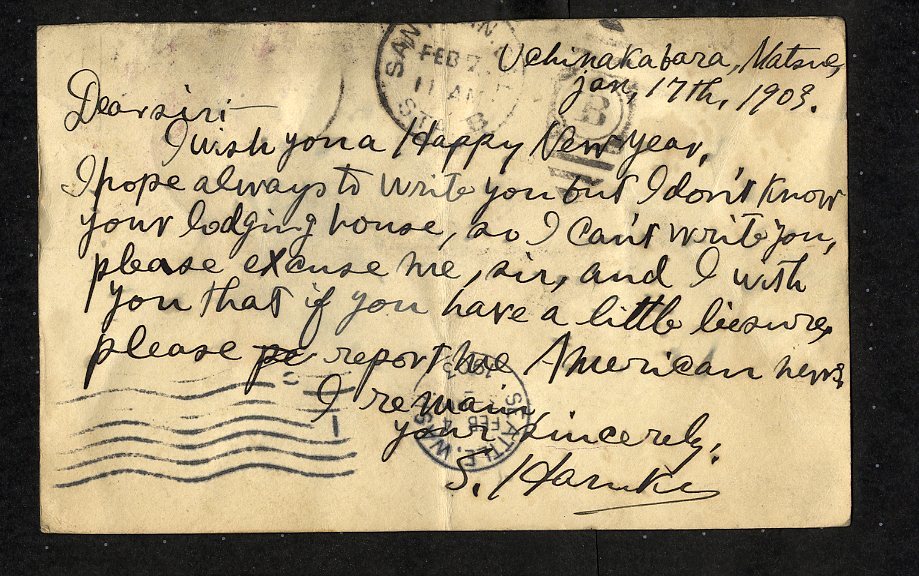 Uchinakabara, Matsue,
jan, 17th, 1903.
Dear sir:—
I wish you a Happy New year,
I hope always to write you but I don't know
your lodging house, so I can't write you,
please excuse me, sir, and I wish
you that if you have a little liesure,
please report me American news,
I remain
your sincerely,
S.
SAN
FEB 7
11 AM
STA. B
B
SEATTLE, WASH
FEB 4